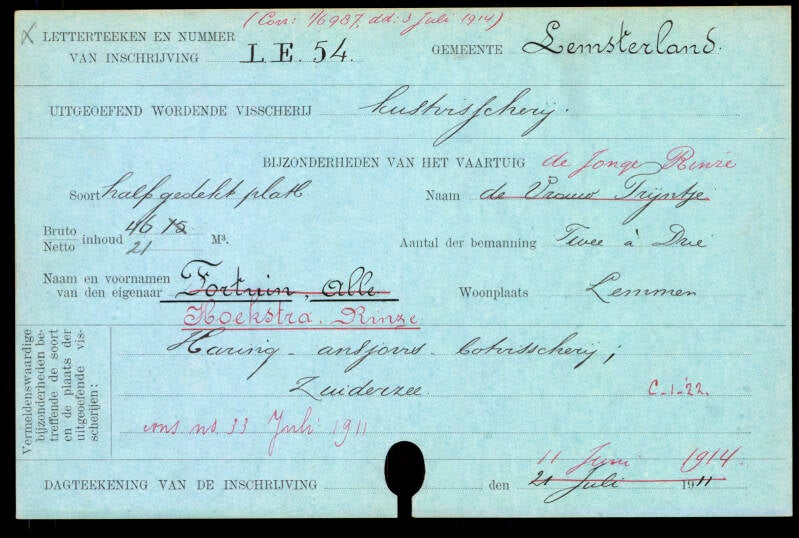 (Corr: 1/6987, dd: 3 Juli 1914)
X LETTERTEEKEN EN NUMMER
VAN INSCHRIJVING L E. 54. GEMEENTE Lemsterland.
UITGEOEFEND WORDENDE VISSCHERIJ kustvisscherij.
BIJZONDERHEDEN VAN HET VAARTUIG de Jonge Rinze
Soort half gedekt platb Naam de Vrouw Trijntje
Bruto 46
Netto inhoud 21 M³. Aantal der bemanning Twee à Drie
Naam en voornamen
van den eigenaar Fortuin, Alle Woonplaats Lemmer
Hoekstra. Rinze
Vermeldenswaardige
bijzonderheden be-
treffende de soort
en de plaats der
uitgeoefende vis-
scherijen:
Haring - ansjovis - botvisscherij;
Zuiderzee. C-1-'22.
no 33 Juli 1911
11 Juni 1914.
DAGTEEKENING VAN DE INSCHRIJVING den 21 Juli 1911